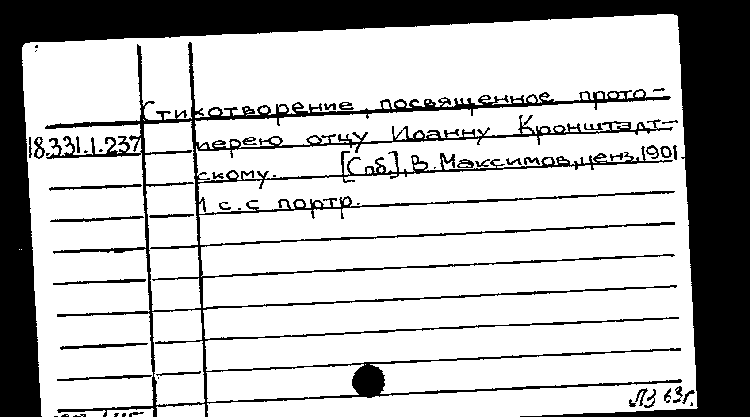 Стихотворение, посвященное прото-
18.331.1.237 иерею отцу Иоанну Кронштадт-
скому. [Спб.], В. Максимов, ценз. 1901
1 с. с портр.
ЛЗ 63г.